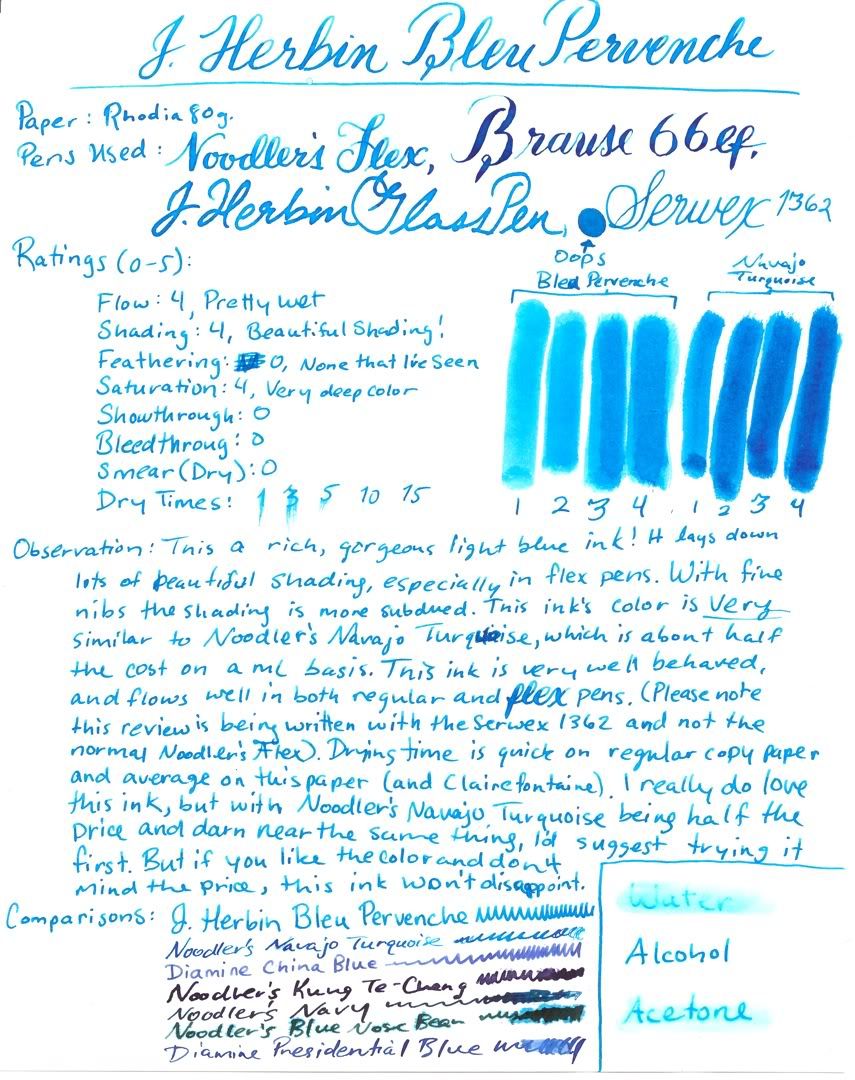 J. Herbin Bleu Pervenche
Paper: Rhodia 80g.
Pens Used: Noodler's Flex, Brause 66ef.
J. Herbin Glass Pen, Serwex 1362
Oops
Ratings (0-5):
Bleu Pervenche
Navajo
Turquoise
Flow: 4, Pretty wet
Shading: 4, Beautiful Shading!
Feathering: 0, None that I've Seen
Saturation: 4, Very deep color
Showthrough: 0
Bleedthroug: 0
Smear (Dry): 0
Dry Times: 1 3 5 10 15
1 2 3 4 1 2 3 4
Observation: This a rich, gorgeous light blue ink! It lays down
lots of beautiful shading, especially in flex pens. With fine
nibs the shading is more subdued. This ink's color is very
similar to Noodler's Navajo Turquoise, which is about half
the cost on a mL basis. This ink is very well behaved,
and flows well in both regular and flex pens. (Please note
this review is being written with the Serwex 1362 and not the
normal Noodler's Flex). Drying time is quick on regular copy paper
and average on this paper (and Clairefontaine). I really do love
this ink, but with Noodler's Navajo Turquoise being half the
price and darn near the same thing, I'd suggest trying it
first. But if you like the color and don't
mind the price, this ink won't disappoint.
Comparisons: J. Herbin Bleu Pervenche
Noodler's Navajo Turquoise
Diamine China Blue
Noodler's Kung Te-Cheng
Noodler's Navy
Noodler's Blue Nose Bear
Diamine Presidential Blue
Water
Alcohol
Acetone